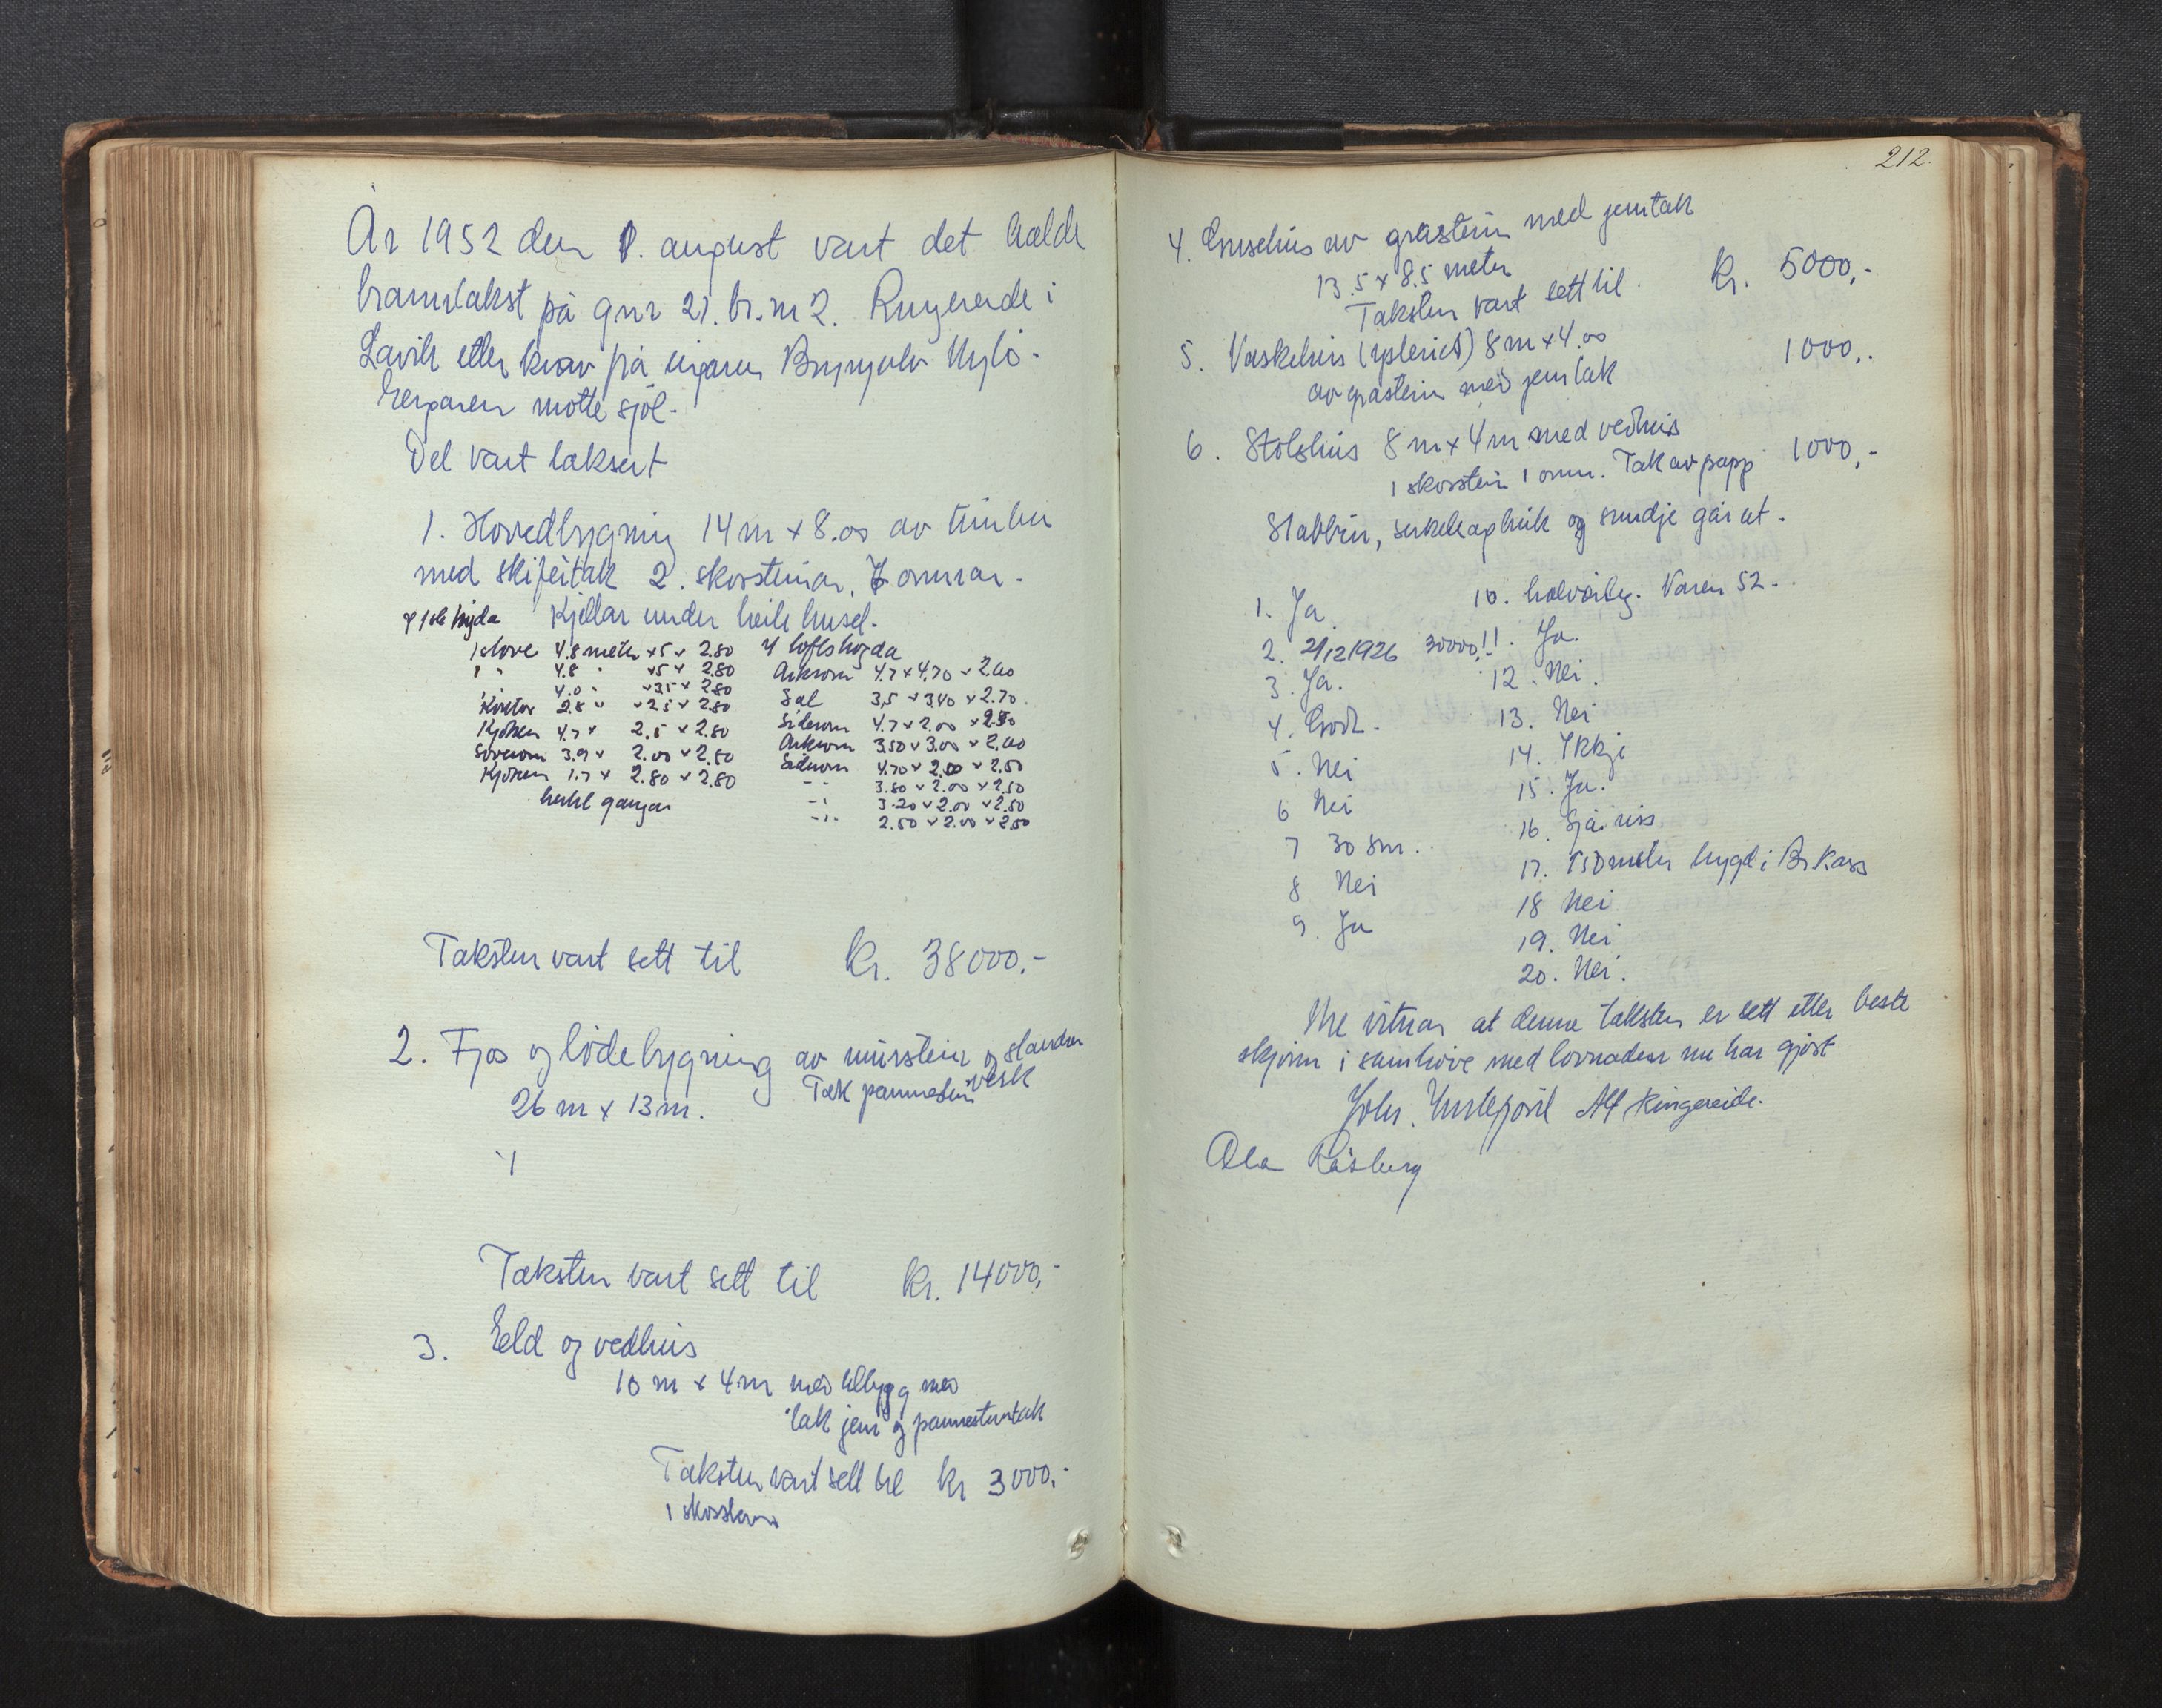 År 1952 den 8. august vart det halde
branntakst på gnr 21. br. nr 2. Ringereide i
Lavik etter krav på eigaren Brynjulv
Eigaren møtte sjøl.
Det vart taksert
1. Hovedbygning 14 m x 8.00 av timber
med skifertak 2. skorsteinar, 7 omnar.
Kjellar under heile huset.
I 1ste høgda
1 stove 4.8 meter x 5 x 2.80
1 " 4.8 " x 5 x 2.80
4.0 " x 3.5 x 2.80
Kontor 2.8 " x 2.5 x 2.80
Kjøken 4.7 x 2.5 x 2.80
Soverom 3.9 x 2.00 x 2.80
Kjøken 1.7 x 2.80 x 2.80
gangar
I loftshøgda
Arkrom 4.7 x 4.70 x 2.60
Sal 3,5 x 3.40 x 2.70
Siderom 4.7 x 2.00 x 2.50
Arkrom 3.50 x 3.00 x 2.60
Siderom 4.70 x 2.00 x 2.50
-"- 3.80 x 2.00 x 2.50
-"- 3.20 x 2.00 x 2.50
-"- 2.50 x 2.00 x 2.50
Taksten vart sett til kr. 38000.-
2. Fjøs og lødebygning av murstein og stander
verk
26 m x 13 m. Tak pannestein
Taksten vart sett til kr. 14000,-
3. Eeld og vedhus
10 m x 4 m med tilbygg med
tak jern og pannesteintak
Taksten vart sett til kr 3000,-
1 skorstein
212.
4. Grisehus av gråstein med jerntak
13.5 x 8.5 meter
Taksten vart sett til. kr. 5000,-
5. Vaskehus 8 m x 4.00 1000,-
av gråstein med jerntak
6. Stølshus 8 m x 4 m med vedhus
1 skorstein 1 omn. Tak av papp 1000,-
Stabbur, og smidje går ut.
1. Ja
2. 2/12 1926 30000,-
3. Ja.
4. Godt.
5. Nei
6 Nei
7 30 sm.
8 Nei
9. Ja
10. halvårleg. Våren 52.
11. Ja.
12. Nei.
13. Nei
14. Ikkje
15. Ja.
16. Sjå riss
17. 150 meter bygd i Br.kass
18 Nei
19. Nei
20. Nei.
Me vitnar at denne taksten er sett etter beste
skjønn i samhøve med lovnaden me har gjort
Joh. Alf Ringereide.
Ola Råsberg